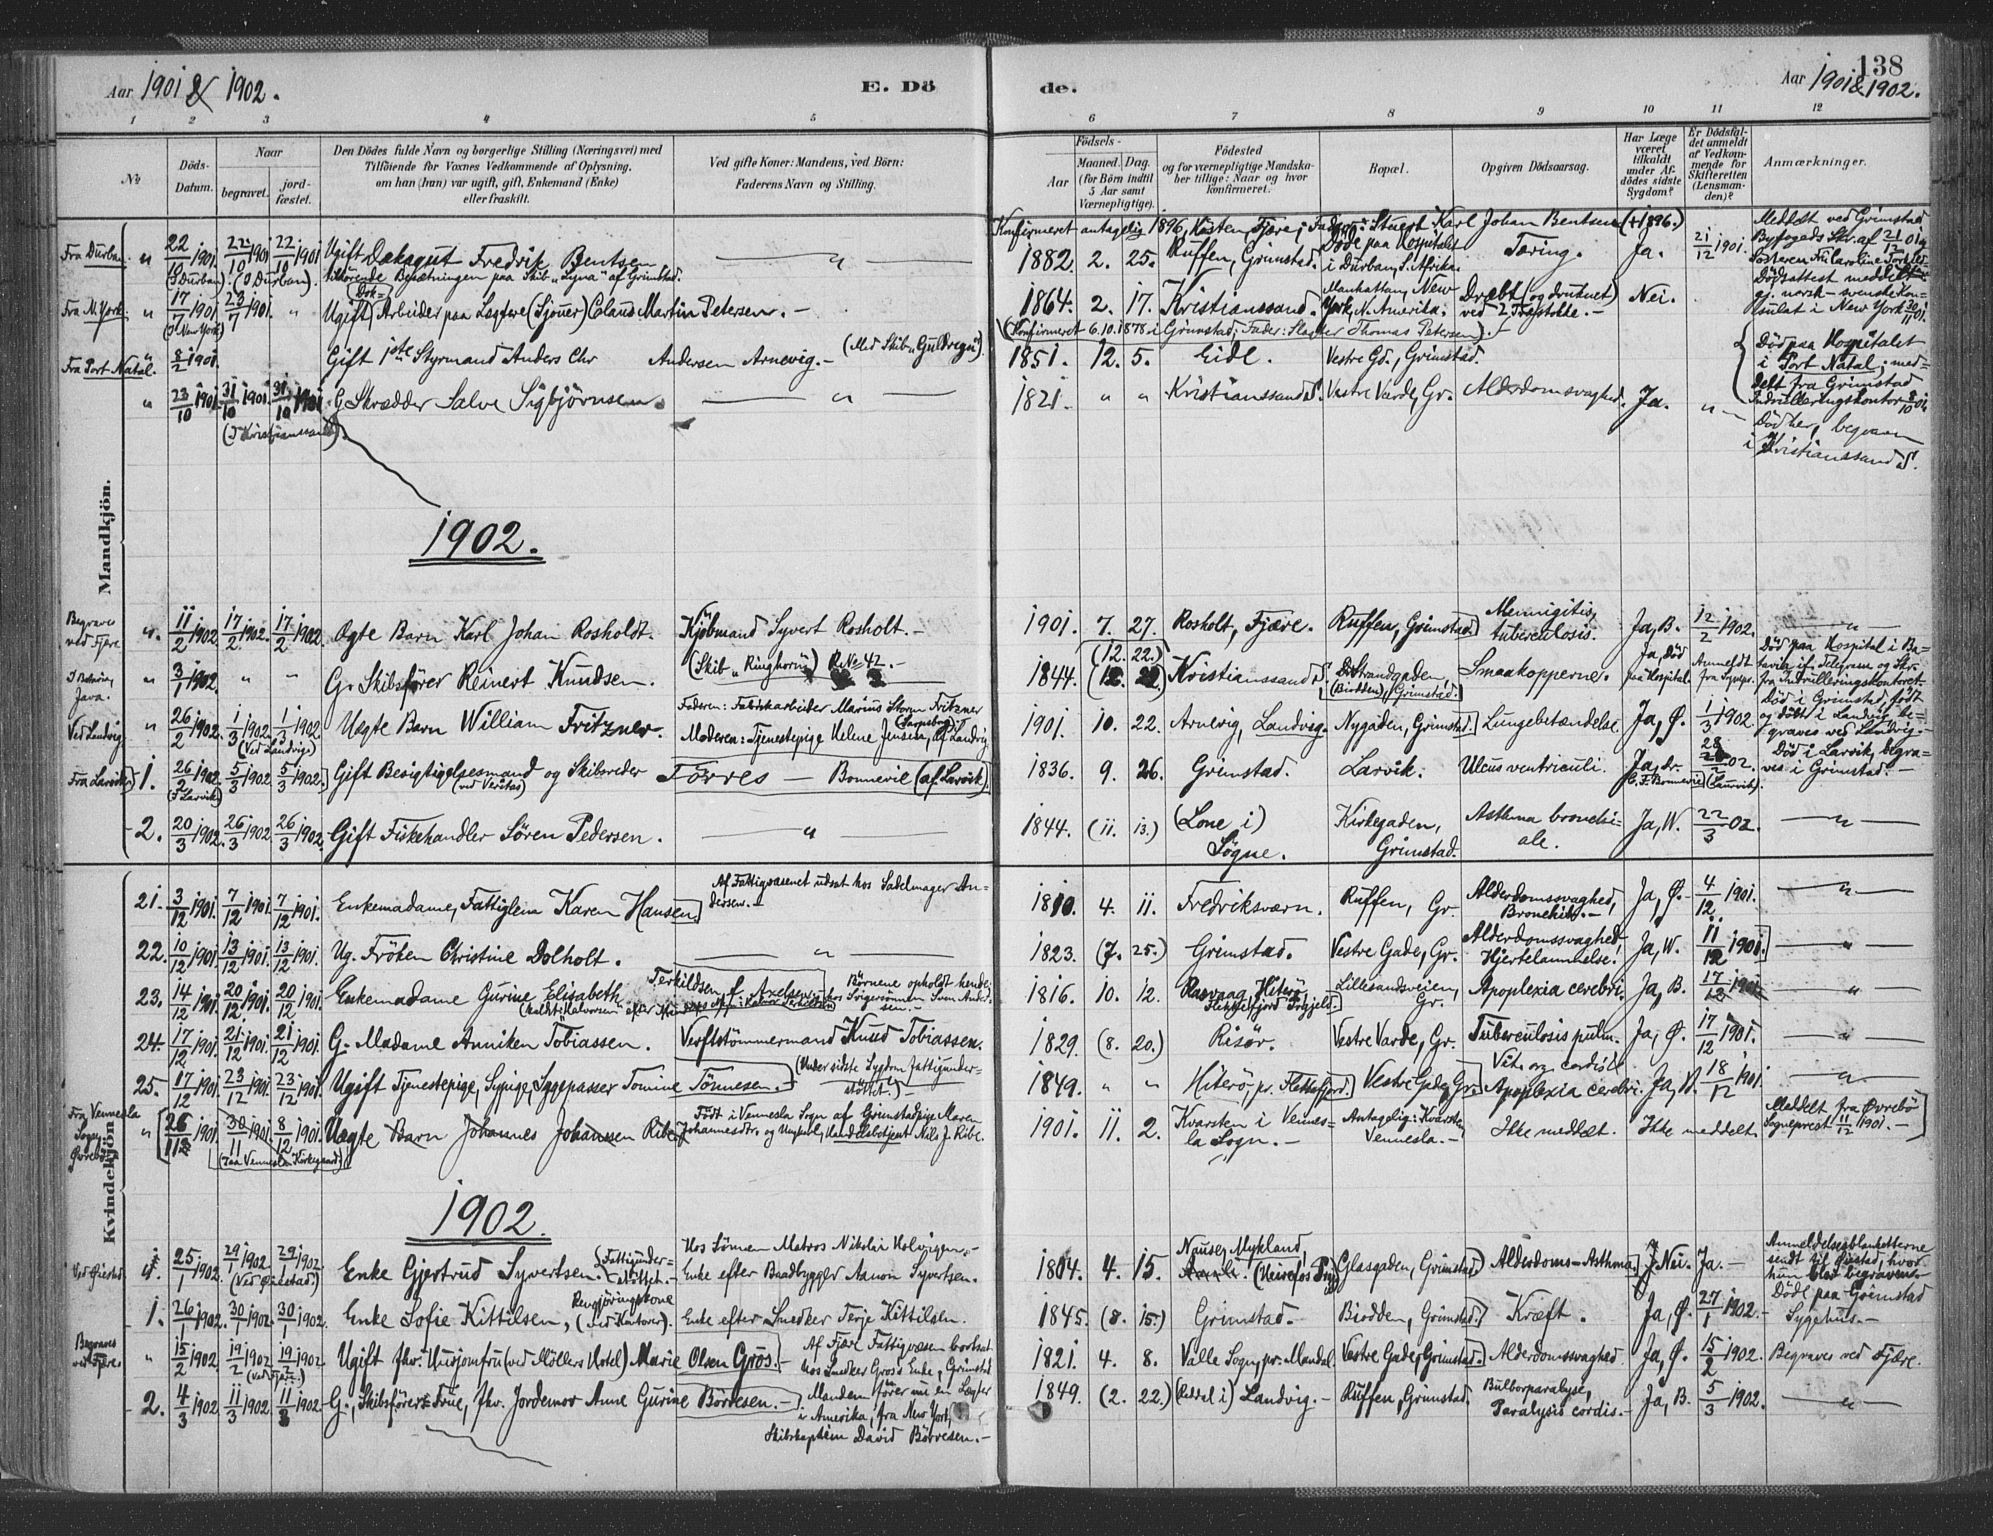 138
Aar 1901 & 1902.
E. Dö
de.
Aar 1901 & 1902.
1 2 3 4 5 6 7 8 9 10 11 12
№
Döds-Datum.
Naar
begravet.
jord-fæstet.
Den Dödes fulde Navn og borgerlige Stilling (Næringsvei) med
Tilföiende for Voxnes Vedkommende af Oplysning,
om han (hun) var ugift, gift, Enkemand (Enke)
eller fraskilt.
Ved gifte Koner: Mandens, ved Börn:
Faderens Navn og Stilling.
Födsels-
Aar
Maaned. Dag.
(for Börn indtil
5 Aar samt
Værnepligtige).
Födested
og for værnepligtige Mandska-
ber tillige: Naar og hvor
konfirmeret.
Bopæl.
Opgiven Dödsaarsag.
Har Læge
været
tilkaldt
under Af-
dödes sidste
Sygdom?
Er Dödsfal-
det anmeldt
af Vedkom-
mende for
Skifteretten
(Lensman-
den)?
Anmærkninger.
Mandkjön.
Konfirmeret antagelig 1896, Høsten, Fjære; Fader: Stuert Karl Johan Bentsen (+ 1896.)
Fra Durban. " 22/10 1901. 22/10 1901 22/10 1901 Ugift Dæksgut Fredrik Bentsen — " — 1882. 2. 25. Ruffen, Grimstad. Døde paa Hospitalet i Durban, S. Afrika. Tæring. Ja. 21/12 1901.
(I Durban). (I Durban). tilhørende Besætningen paa Skib "Syna" af Grimstad.
Meddelt ved Grimstad
Byfogeds Skr. af 21/12 01
Fra N. York. " 17/7 1901 23/7 1901. " Ugift Dok-Arbeider paa Lægtere (Sjouer) Claus Martin Petersen. — 1864. 2. 17. Kristianssand. Manhattan, New York, N. Amerika. Dræbt (og druknet) ved 2 Træstokke. — Nei.
(I New York)
(Konfirmeret 6.10.1878 i Grimstad; Fader: Slagter Thomas Petersen). —
Dödsattest meddelt
gj. norsk-svenske Kon-
sulat i New York 30/11 01.
Fra Port Natal. 8/2 1901. Gift 1ste Styrmand Anders Chr Andersen Arnevig. — (Med Skib "Guldregn") 1851. 12. 5. Eide. Vestre Gd., Grimstad.
Død paa Hospitalet
i Port Natal; med-
delt fra Grimstad
Indrulleringskontor 8/10 01.
" 23/10 1901. 31/10 1901. 31/10 1901 G. Skrædder Salve Sigbjörnsen. — " — 1821. " " Kristianssand S. Vestre Varde, Gr. Alderdomssvaghed. Ja. " —
(I Kristianssand).
Død her, begraven
i Kristianssand S.
1902.
Begraves ved Fjære " 11/2 1902 17/2 1902. 17/2 1902. Ægte Barn Karl Johan Rosholdt. Kjøbmand Syvert Rosholt. — 1901. 7. 27. Rosholt, Fjære. Ruffen, Grimstad. Meningitis tuberculosis. Ja, B. 12/2 1902. — " —
I Batavia, Java. " 3/1 1902. " " Gr. Skibsfører Reinert Knudsen. (Skib "Ringhorn") R. No 42. — 1844. (12. 22.) Kristianssand S. Strandgaden, (Biodden), Grimstad. Smaakopperne. Ja, Død paa Hospital.
Død paa Hospital i Ba-
tavia if. Telegram og Skr.
fra Indrulleringskontoret.
Ved Landvig. " 26/2 1902. 1/3 1902 1/3 1902 Uægte Barn William Fritzner. Faderen: Fabrikarbeider Marius Storm Fritzner
(Ved Landvig) Moderen: Tjenestepige Helene Jensen, af Landvig 1901. 10. 22. Arnevig, Landvig. Nygaden, Grimstad. Lungebetændelse. Ja, Ø. 1/3 1902.
Død i Grimstad, født
og døbt i Landvig, be-
graves ved Landvig. —
Fra Larvik 1. 26/2 1902 5/3 1902 5/3 1902. Gift Besigtigelsesmand og Skibsreder Törres — Bonnevie (af Larvik). 1836. 9. 26. Grimstad. Larvik. Ulcus ventriculi. Ja, dr. E. F. Bonnevie 28/2 02. (Laurvik).
(I Larvik) (ved Veritas)
Død i Larvik, begra-
ves i Grimstad. —
2. 20/3 1902. 26/3 1902. 26/3 1902. Gift Fiskehandler Sören Pedersen. — " — 1844. (11. 13.) (Lone i) Søgne. Kirkegaden, Grimstad. Asthma bronchi-ale. Ja, W. 22/3 02. — " —
Kvindekjön.
21. 3/12 1901. 7/12 1901. 7/12 1901. Enkemadame, Fattiglem Karen Hansen. Af Fattigvæsenet udsat hos Sadelmager An-dersen. — 1810. 4. 11. Fredriksværn. Ruffen, Gr. Alderdomssvaghed, Bronchit. — Ja, Ø. 4/12 1901. — " —
22. 10/12 1901. 13/12 1901. 13/12 1901. Ug. Fröken Christine Dolholt. — " — 1823. (7. 25.) Grimstad. Vestre Gade, Gr. Alderdomssvaghed, Hjertelammelse. Ja, W. 11/12 1901. — " —
23. 14/12 1901. 20/12 1901. 20/12 1901. Enkemadame Gurine Elisabeth Terkildsen f. Axelsen. Børnene opholdt hende hos Svigersønnen Sven Ander-sen. — 1816. 10. 12. Rasvaag, Hiterø, Flekkefjord Lillesandsveien, Gr. Apoplexia cerebri. Ja, B. 17/12 1901. — " —
24. 17/12 1901. 21/12 1901. 21/12 1901. G. Madame Anniken Tobiassen. Verftstömmermand Knud Tobiassen. 1829. (8. 20.) Risör. Vestre Varde, Gr. Tuberculosis pulm. Ja, Ø. 17/12 1901. — " —
25. 17/12 1901. 23/12 1901. 23/12 1901. Ugift Tjenestepige, Sypige, Sygepasser Tomine Tönnesen. — (Under sidste Sygdom fattigunder-støttet.) 1849. " " Hiterø, pr. Flekkefjord. Vestre Gade, Gr. Vit. org. cordis & Apoplexia cerebri. Ja, W. 18/12 1901. — " —
Fra Vennesla Sogn, Øvrebø " 26/11 1901. 30/11 1901. 8/12 1901. Uægte Barn Johannes Johanssen Ribe Født i Vennesla Sogn af Grimstadpige Maren
(Paa Vennesla Kirkegaard) Johannesdtr. og Ungkarl, Handelsbetjent Nils J. Ribe. 1901. 11. 2. Kvarsten i Vennes-la Sogn. — Antagelig: Kvarsten, Vennesla. — Ikke meddelt. Ikke meddelt.
Meddelt fra Øvrebø
Sogneprest 11/12 1901. —
1902.
Ved Øiestad 25/1 1902. 29/1 1902. 29/1 1902. Enke Gjertrud Syvertsen. (Fattigunder-støttet. — Hos Sönnen Matros Nikolai Holvigen. —
(Ved Øiestad) Enke efter Baadbygger Aanon Syvertsen. 1814. 4. 15. Mykland, Glasgaden, Grimstad. Alderdoms-Asthma. Nei. Ja. —
Anmeldelsesblanketterne
sendt til Øiestad, hvor
hun blev begraven. —
1. 26/1 1902. 30/1 1902. 30/1 1902. Enke Sofie Kittilsen, Rengjøringskone (ved Kontorer). Enke efter Snedker Terje Kittilsen. 1845. (8. 15.) Grimstad. Biodden, Grimstad. Kræft. Ja, Ø. 27/1 1902. —
Døde paa Grimstad
Sygehus. —
Begraves ved Fjære. " 15/2 1902. 19/2 1902. 19/2 1902. Ugift fhv. Husjomfru (ved Möllers Hotel) Marie Olsen Grös. — Af Fjære Fattigvæsen bortsat
(ved Fjære) hos Snedker Grös's Enke, Grimstad 1821. 4. 8. Valle Sogn, pr. Mandal. Vestre Gade, Grimstad. Alderdomssvaghed. Ja, Ø. 15/2 1902. Begraves ved Fjære.
2. 4/3 1902 11/3 1902 11/3 1902 G., Skibsfører-Frue, fhv. Jordemor Anne Gurine Börresen. — Manden fører nu en Lægter
i Amerika, fra New York,
Skibskaptein David Börresen. — 1849. (2. 22.) (Reddal i) Landvig. — Ruffen, Grimstad. Bulbærparalyse, Paralysis cordis. — Ja, B. 5/3 1902. — " —